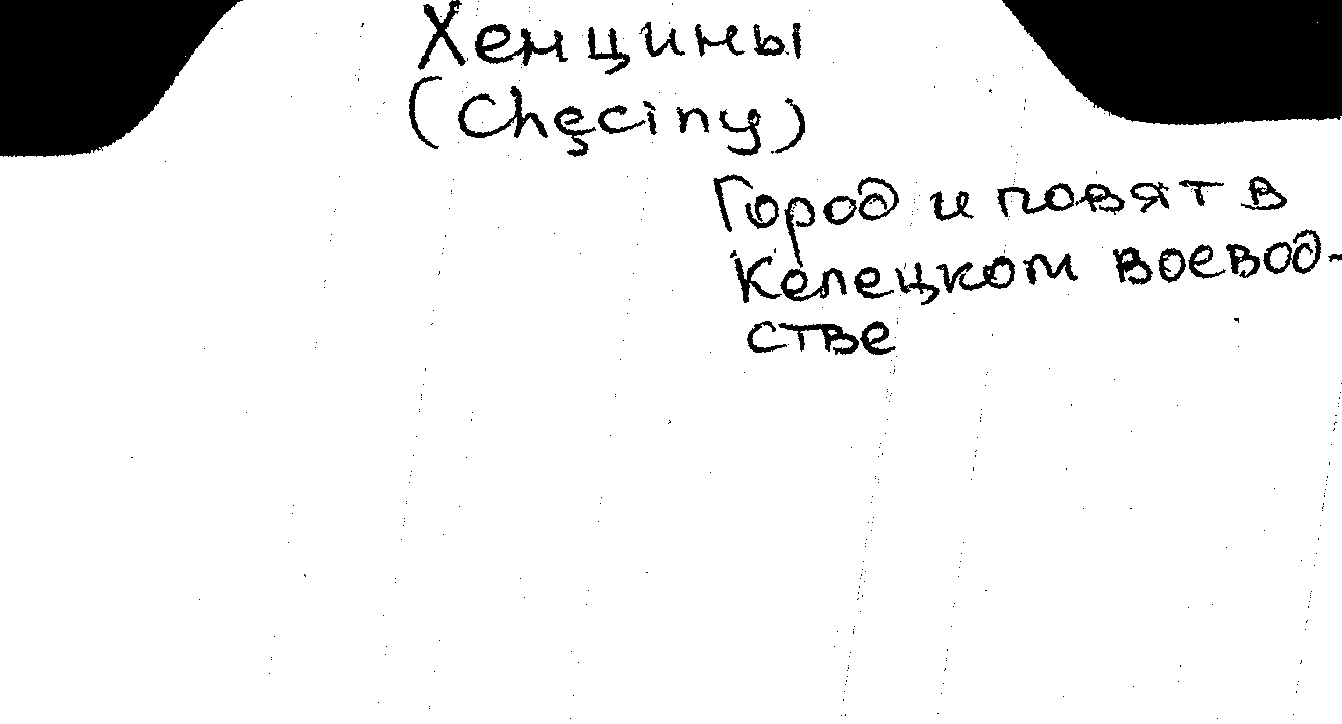 Хенцины
(Chęciny)
Город и повят в
Келецком воевод-
стве